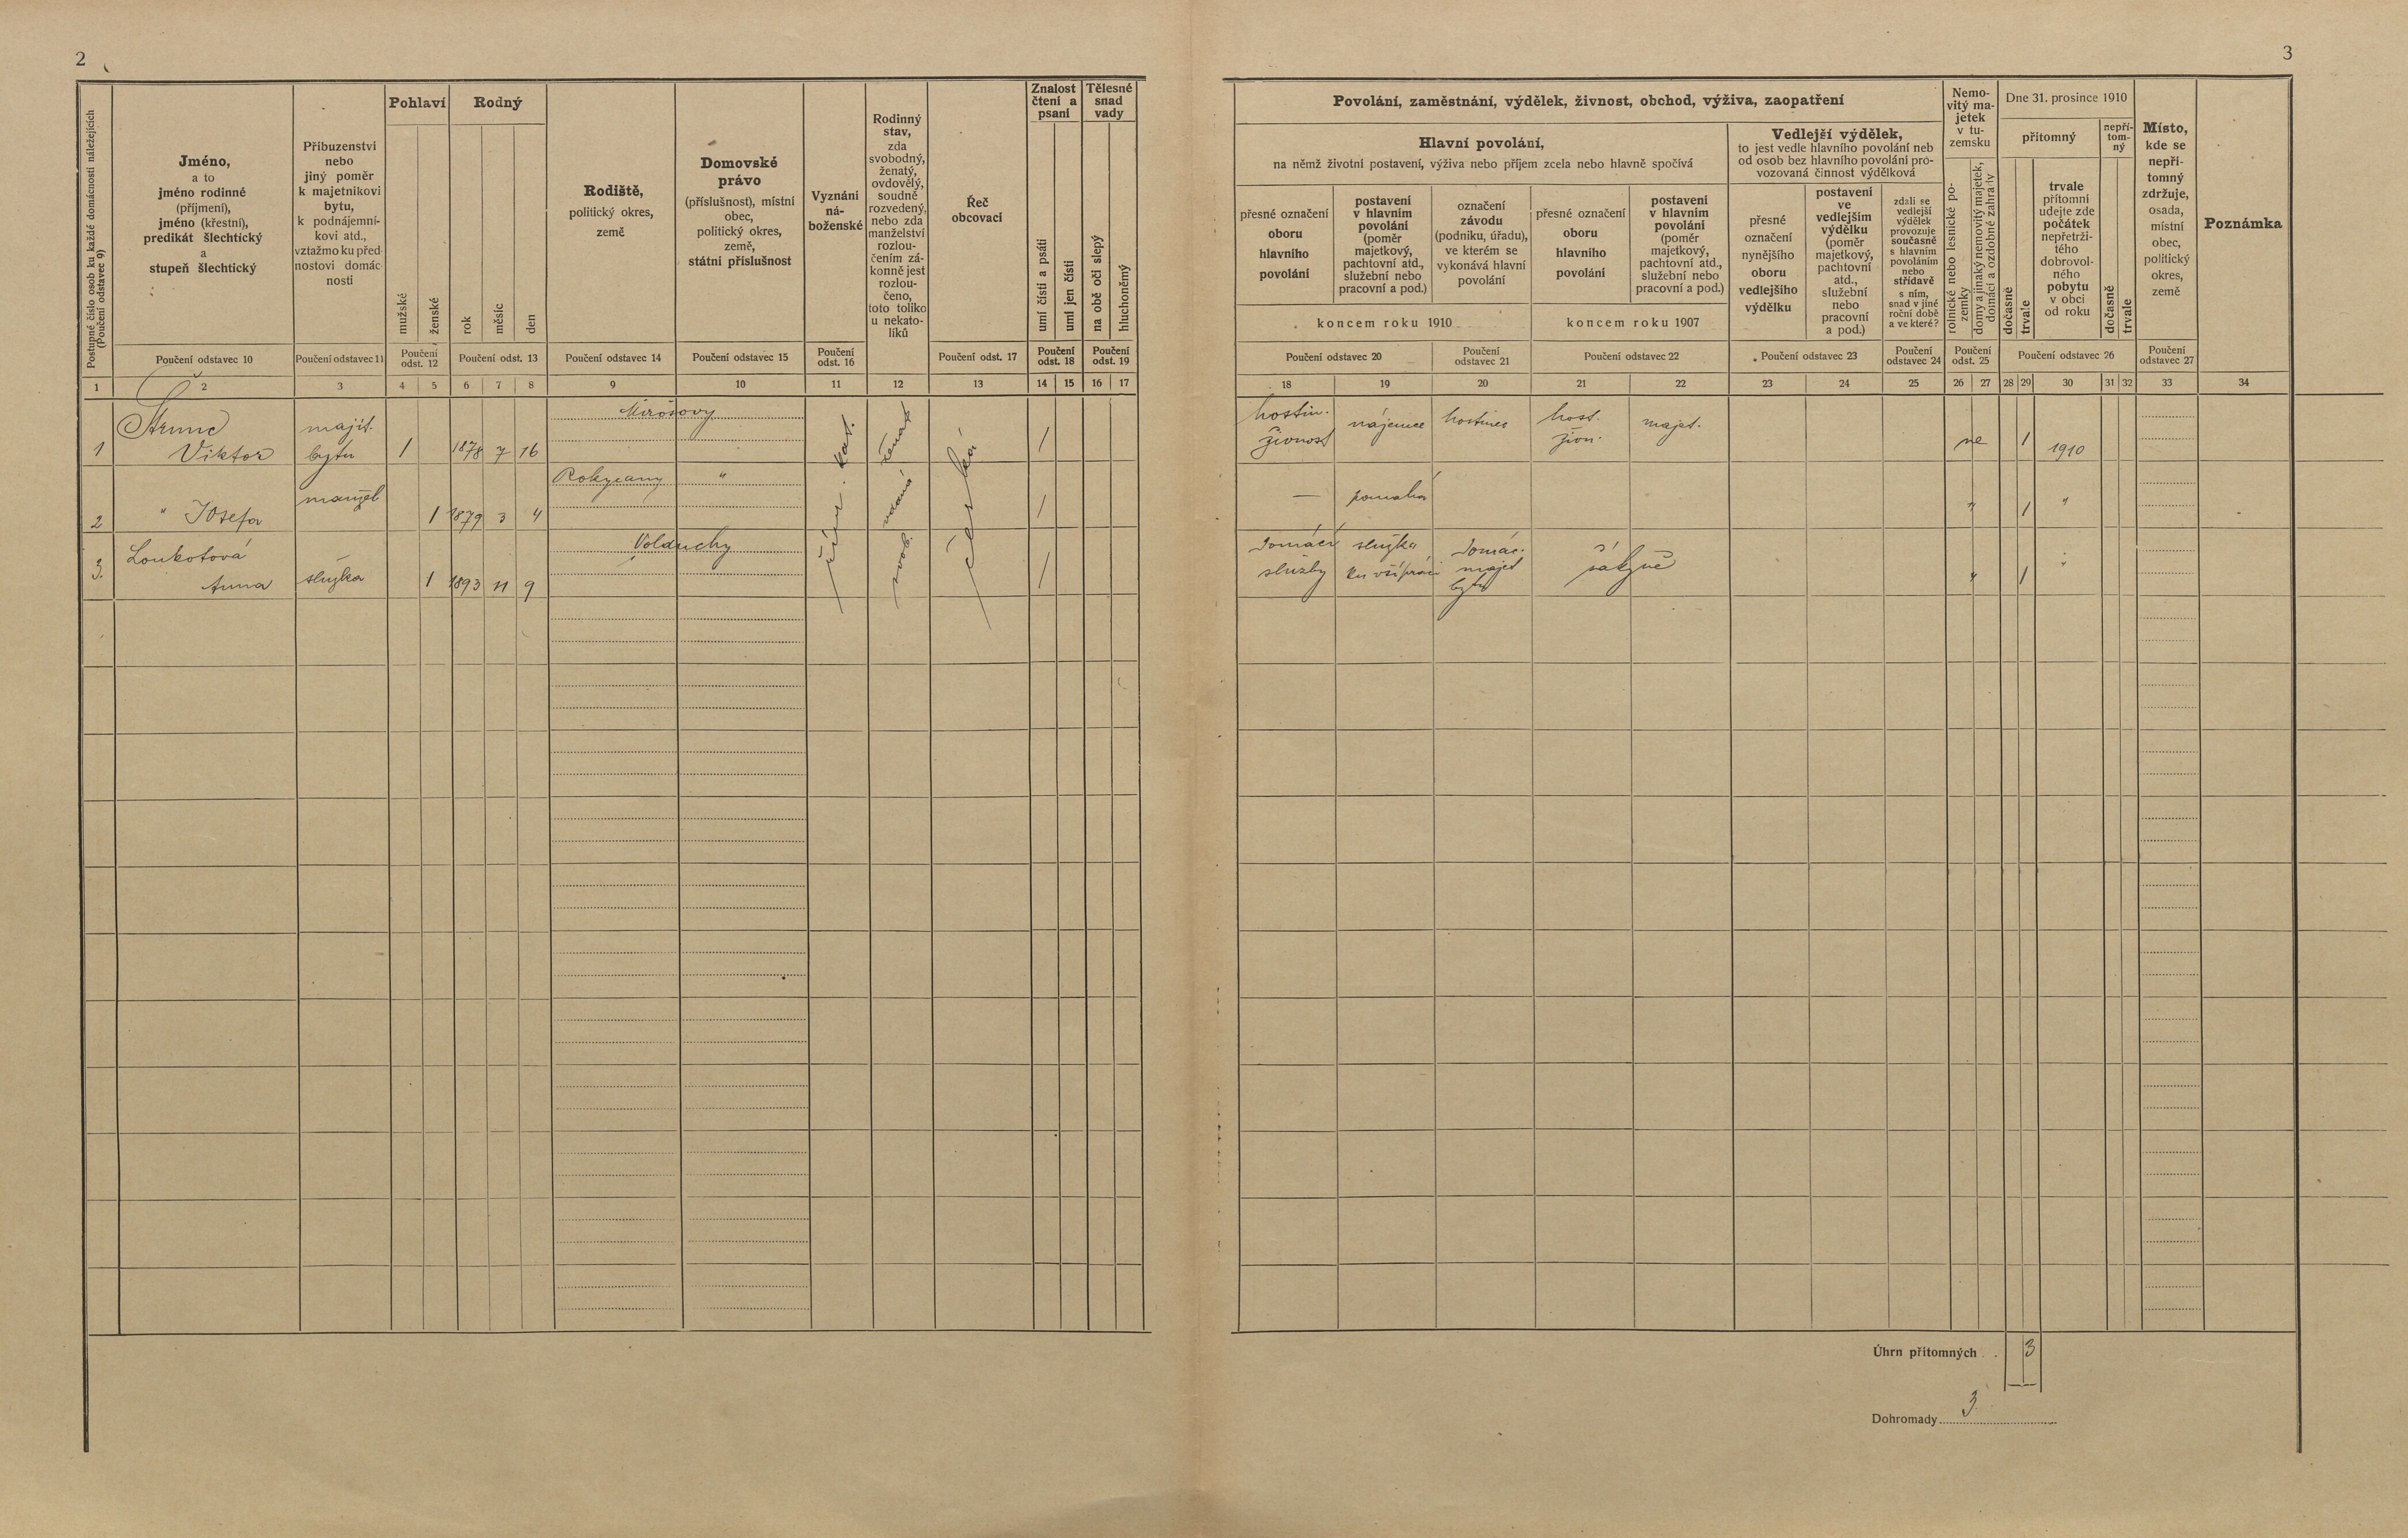 2
3
Postupné číslo osob ku každé domácnosti náležejících
(Poučení odstavec 9)
Jméno,
a to
jméno rodinné
(příjmení),
jméno (křestní),
predikát šlechtický
a
stupeň šlechtický
Příbuzenství
nebo
jiný poměr
k majetníkovi
bytu,
k podnájemní-
kovi atd.,
vztažmo ku před-
nostovi domác-
nosti
Pohlaví
mužské
ženské
Rodný
rok
měsíc
den
Rodiště,
politický okres,
země
Domovské
právo
(příslušnost), místní
obec,
politický okres,
země,
státní příslušnost
Vyznání
ná-
boženské
Rodinný
stav,
zda
svobodný,
ženatý,
ovdovělý,
soudně
rozvedený,
nebo zda
manželství
rozlou-
čením zá-
konně jest
rozlou-
čeno,
toto toliko
u nekato-
líků
Řeč
obcovací
Znalost
čtení a
psaní
umí čísti a psáti
umí jen čísti
Tělesné
snad
vady
na obě oči slepý
hluchoněmý
Poučení odstavec 10
Poučení odstavec 11
Poučení
odst. 12
Poučení odst. 13
Poučení odstavec 14
Poučení odstavec 15
Poučení
odst. 16
Poučení odst. 17
Poučení
odst. 18
Poučení
odst. 19
1 2 3 4 5 6 7 8 9 10 11 12 13 14 15 16 17
Povolání, zaměstnání, výdělek, živnost, obchod, výživa, zaopatření
Hlavní povolání,
na němž životní postavení, výživa nebo příjem zcela nebo hlavně spočívá
přesné označení
oboru
hlavního
povolání
postavení
v hlavním
povolání
(poměr
majetkový,
pachtovní atd.,
služební nebo
pracovní a pod.)
označení
závodu
(podniku, úřadu),
ve kterém se
vykonává hlavní
povolání
přesné označení
oboru
hlavního
povolání
postavení
v hlavním
povolání
(poměr
majetkový,
pachtovní atd.,
služební nebo
pracovní a pod.)
koncem roku 1910
koncem roku 1907
Vedlejší výdělek,
to jest vedle hlavního povolání neb
od osob bez hlavního povolání pro-
vozovaná činnost výdělková
přesné
označení
nynějšího
oboru
vedlejšího
výdělku
postavení
ve
vedlejším
výdělku
(poměr
majetkový,
pachtovní
atd.,
služební
nebo
pracovní
a pod.)
zdali se
vedlejší
výdělek
provozuje
současně
s hlavním
povoláním
nebo
střídavě
s ním,
snad v jiné
roční době
a ve které?
Nemo-
vitý ma-
jetek
v tu-
zemsku
rolnické nebo lesnické po-
zemky
domy a jinaký nemovitý majetek,
domácí a ozdobné zahrady
Dne 31. prosince 1910
přítomný
dočasně
trvale
trvale
přítomní
udejte zde
počátek
nepřetrži-
tého
dobrovol-
ného
pobytu
v obci
od roku
nepří-
tom-
ný
dočasně
trvale
Místo,
kde se
nepří-
tomný
zdržuje,
osada,
místní
obec,
politický
okres,
země
Poznámka
Poučení odstavec 20
Poučení
odstavec 21
Poučení odstavec 22
Poučení odstavec 23
Poučení
odstavec 24
Poučení
odst. 25
Poučení odstavec 26
Poučení
odstavec 27
18 19 20 21 22 23 24 25 26 27 28 29 30 31 32 33 34
Strunc majit. Mirošovy
1 Viktor bytu 1 1878 7 16 ženat 1
" Rokycany "
2 " Josefa manžel 1 1879 3 4 vdaná 1
Loukotová Volduchy
3. Anna služka 1 1893 11 9 svob. 1
řím. kat.
česká
hostin. nájemce hostinec host. majet.
živnost živn. ne 1 1910
— pomahá " 1 "
Domácí služka Domác. žákyně
služby ku vší práci majet " 1 "
bytu
Úhrn přítomných . . 3
Dohromady 3